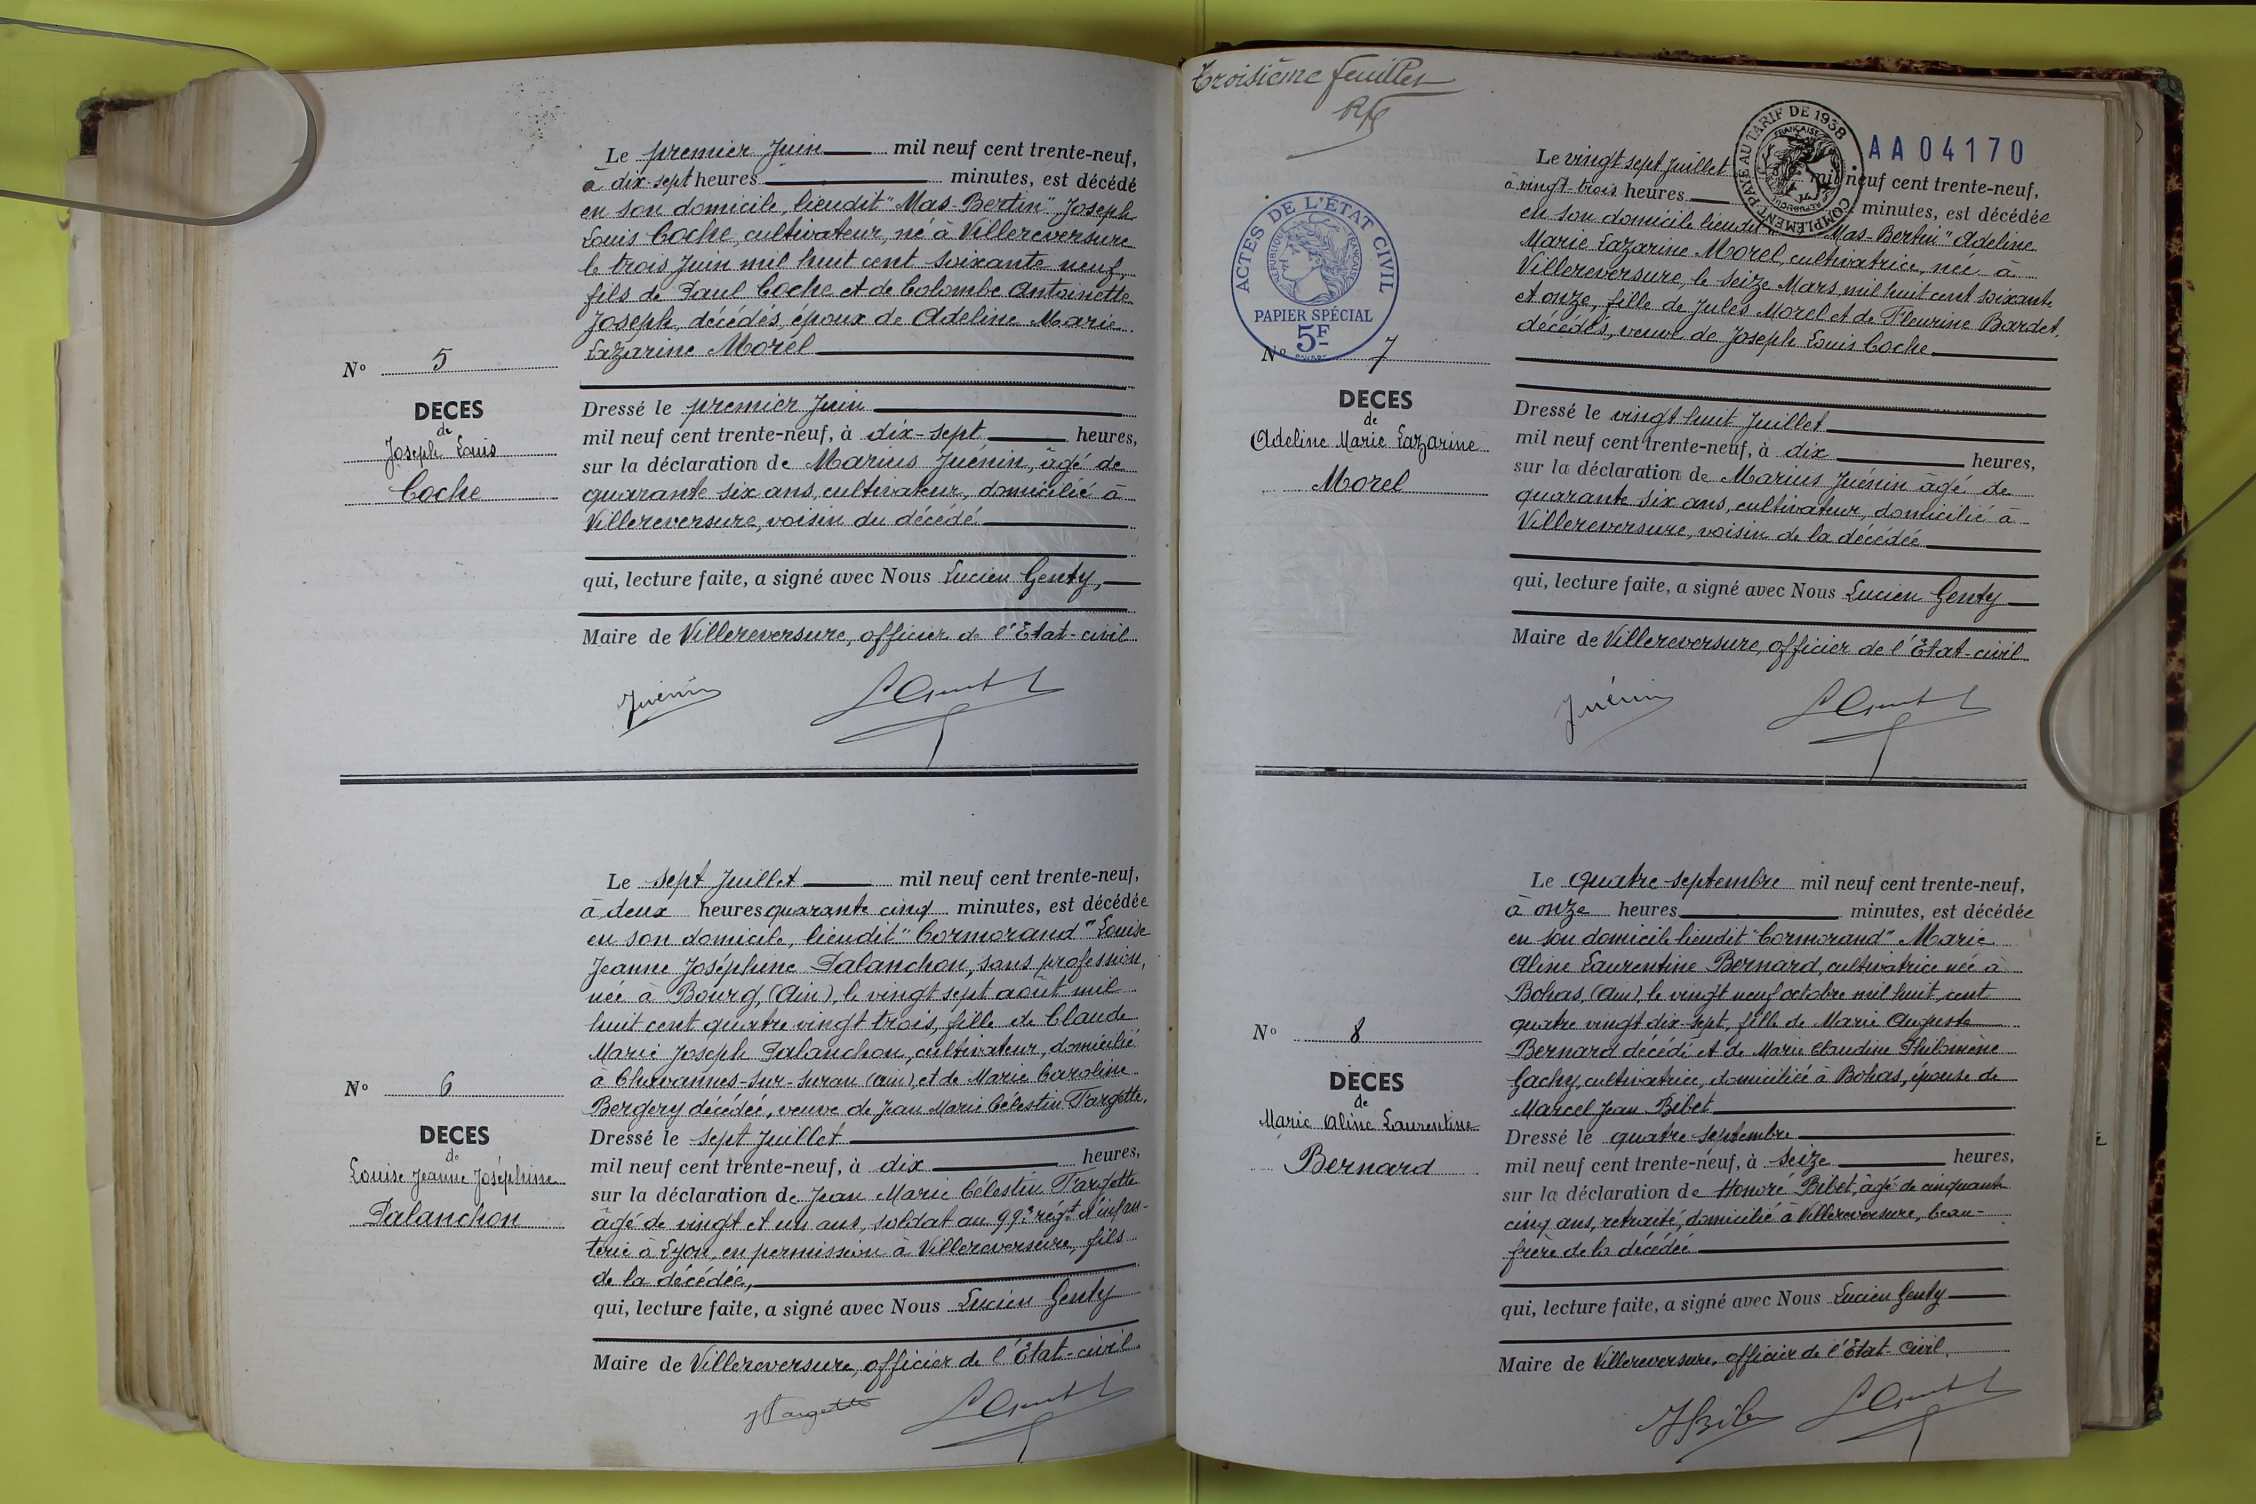 Le premier Juin mil neuf cent trente-neuf,
à dix-sept heures minutes, est décédé
en son domicile, lieudit "Mas-Bertin" Joseph
Louis Coche, cultivateur, né à Villereversure
le trois Juin mil huit cent soixante neuf,
fils de Paul Coche et de Colombe Antoinette
Joseph, décédés, époux de Adeline Marie
Lazarine Morel
N° 5
DECES
de
Joseph Louis
Coche
Dressé le premier Juin
mil neuf cent trente-neuf, à dix-sept heures,
sur la déclaration de Marius Juénin, âgé de
quarante six ans, cultivateur, domicilié à
Villereversure, voisin du décédé
qui, lecture faite, a signé avec Nous Lucien Genty,
Maire de Villereversure, officier de l'Etat-civil
Juénin
Le sept Juillet mil neuf cent trente-neuf,
à deux heures quarante cinq minutes, est décédée
en son domicile, lieudit "Cormorand" Louise
Jeanne Joséphine Palanchon, sans profession,
née à Bourg, (Ain), le vingt sept août mil
huit cent quatre vingt trois, fille de Claude
Marie Joseph Palanchon, cultivateur, domicilié
à Chavannes-sur-suran (Ain), et de Marie Caroline
Bergery décédée, veuve de Jean Marie Célestin Fargette.
N° 6
DECES
de
Louise Jeanne Joséphine
Palanchon
Dressé le sept Juillet
mil neuf cent trente-neuf, à dix heures,
sur la déclaration de Jean Marie Célestin Fargette
âgé de vingt et un ans, soldat au 99e regt d'infan-
terie à Lyon, en permission à Villereversure, fils
de la décédée,
qui, lecture faite, a signé avec Nous Lucien Genty
Maire de Villereversure, officier de l'Etat-civil.
J Fargette
Troisième feuillet
COMPLEMENT PAYE AU TARIF DE 1938
REPUBLIQUE FRANÇAISE
AA04170
ACTES DE L'ÉTAT CIVIL
RÉPUBLIQUE FRANÇAISE
PAPIER SPÉCIAL
5F
Le vingt sept Juillet mil neuf cent trente-neuf,
à vingt-trois heures minutes, est décédée
en son domicile lieudit "Mas-Bertin" Adeline
Marie Lazarine Morel, cultivatrice, née à
Villereversure, le seize Mars mil huit cent soixante
et onze, fille de Jules Morel et de Fleurine Bardet,
décédés, veuve de Joseph Louis Coche
N° 7
DECES
de
Adeline Marie Lazarine
Morel
Dressé le vingt huit Juillet
mil neuf cent trente-neuf, à dix heures,
sur la déclaration de Marius Juénin âgé de
quarante six ans, cultivateur, domicilié à
Villereversure, voisin de la décédée
qui, lecture faite, a signé avec Nous Lucien Genty
Maire de Villereversure, officier de l'Etat-civil
Juénin
Le quatre septembre mil neuf cent trente-neuf,
à onze heures minutes, est décédée
en son domicile lieudit "Cormorand" Marie
Aline Laurentine Bernard, cultivatrice née à
Bohas, (Ain), le vingt neuf octobre mil huit cent
quatre vingt dix-sept, fille de Marie Auguste
Bernard décédé et de Marie Claudine Philomène
Gachy, cultivatrice, domiciliée à Bohas, épouse de
Marcel Jean Bibet
N° 8
DECES
de
Marie Aline Laurentine
Bernard
Dressé le quatre septembre
mil neuf cent trente-neuf, à seize heures,
sur la déclaration de Honoré Bibet, âgé de cinquante
cinq ans, retraité, domicilié à Villereversure, beau-
frère de la décédée
qui, lecture faite, a signé avec Nous Lucien Genty
Maire de Villereversure, officier de l'Etat-Civil.